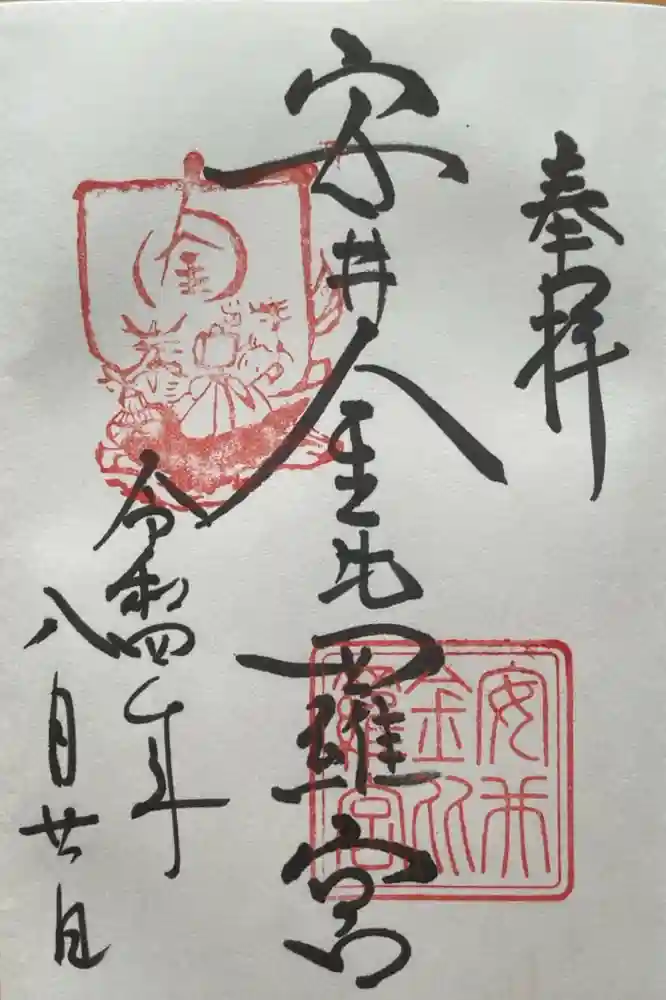 奉拝
安井金比羅宮
令和四年
八月廿日
金
安井
金比
羅宮